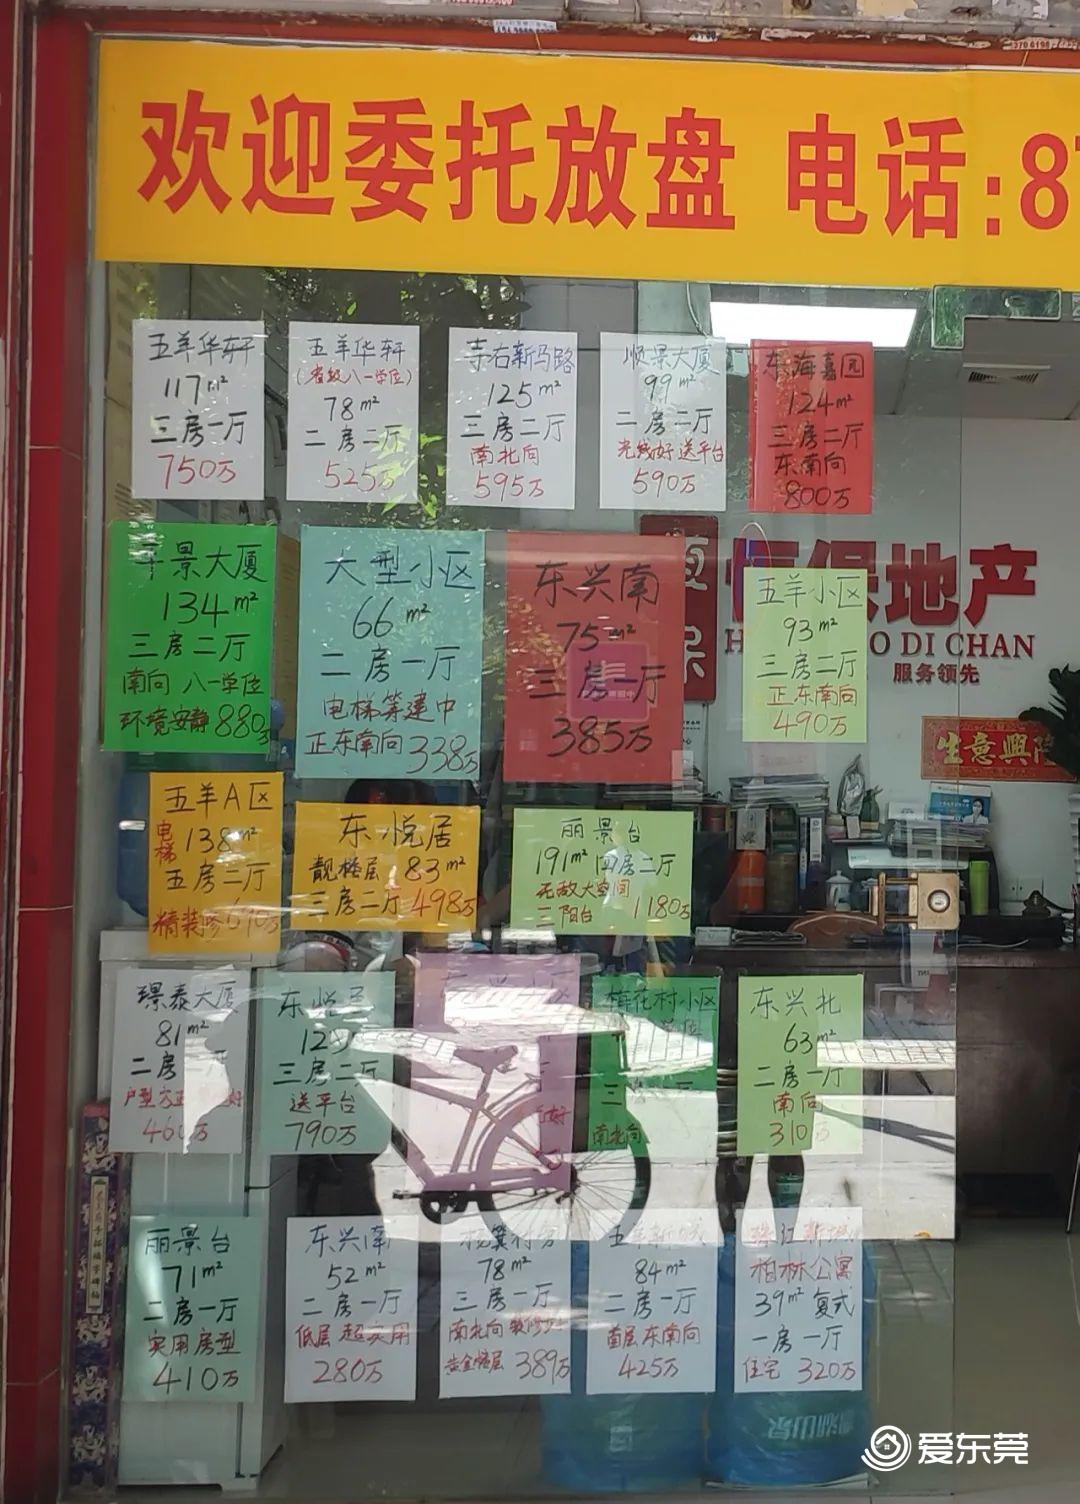 欢迎委托放盘 电话:8
五羊华轩
117m²
三房一厅
750万
五羊华轩
(省级八一学位)
78m²
二房二厅
525万
寺右新马路
125m²
三房二厅
南北向
595万
顺景大厦
99m²
二房二厅
光线好送平台
590万
东海嘉园
124m²
三房二厅
东南向
800万
景大厦
134m²
三房二厅
南向 八一学位
环境安静 880万
大型小区
66m²
二房一厅
电梯筹建中
正东南向 338万
东兴南
75m²
三房一厅
385万
五羊小区
93m²
三房二厅
正东南向
490万
恒保地产
DI CHAN
服务领先
生意興隆
五羊A区
电梯 138m²
五房二厅
精装修 690万
东悦居
靓楼层 83m²
三房二厅 498万
丽景台
191m² 四房二厅
无敌大空间
三阳台 1180万
璟泰大厦
81m²
二房一厅
户型方正 好
460万
东悦居
三房二厅
送平台
790万
梅花村小区
南北向
东兴北
63m²
二房一厅
南向
310万
丽景台
71m²
二房一厅
实用房型
410万
东兴南
52m²
二房一厅
低层 超实用
280万
杨箕村
78m²
三房一厅
南北向 装修好
黄金楼层 389万
五羊新城
84m²
二房一厅
首层 东南向
425万
珠江新城
柏林公寓
39m² 复式
一房一厅
住宅 320万
爱东莞